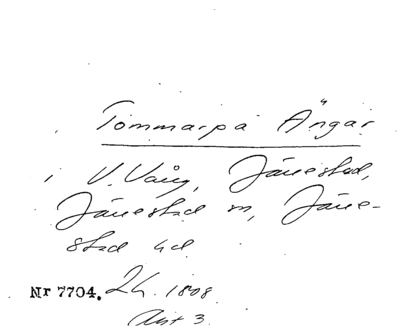 Tommarpa Ängar
i V. Vång, Jänestad,
Jänestad sn, Jäne-
stad hd
Nr 7704. 24. 1808
Akt 3